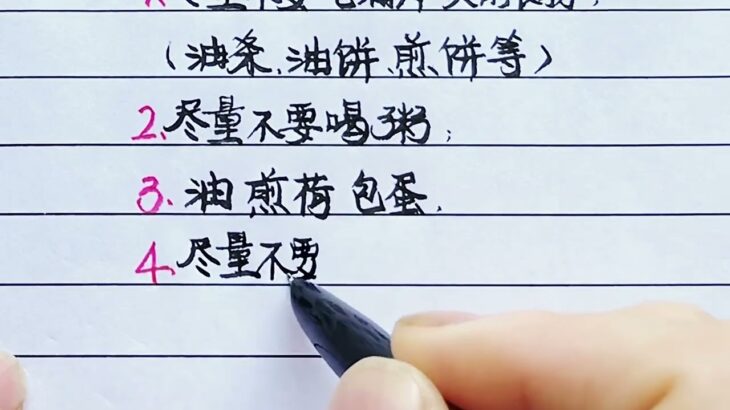 尽量不要吃
(油条、油饼、煎饼等)
2、尽量不要喝粥;
3、油煎荷包蛋.
4、尽量不要